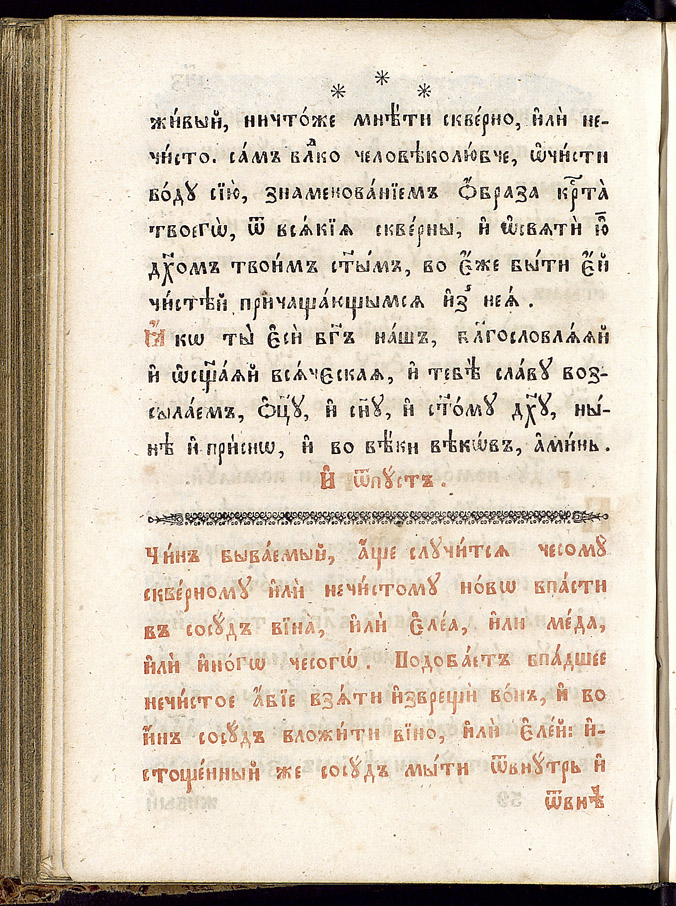 * * *
жи́вый, ничто́же мнѣ́ти скве́рно, и҆лѝ не-
чи́сто. са́мъ влⷣко человѣколю́бче, ѡ҆чи́сти
во́дꙋ сїю̀, знаменова́нїемъ ѻ҆́браза крⷭ҇та̀
твоегѡ̀, ѿ всѧ́кїѧ скве́рны, и҆ ѡ҆свѧтѝ ю҆̀
дх҃омъ твои́мъ ст҃ы́мъ, во є҆́же бы́ти є҆́й
чи́стѣй причаща́ющымсѧ и҆з̾ неѧ̀.
Ꙗ҆́кѡ ты̀ є҆сѝ бг҃ъ на́шъ, блⷢ҇ословлѧ́ѧй
и҆ ѡ҆сщ҃а́ѧй всѧ́ческаѧ, и҆ тебѣ̀ сла́вꙋ воз-
сыла́емъ, ѻ҆ц҃ꙋ̀, и҆ сн҃ꙋ, и҆ ст҃о́мꙋ дх҃ꙋ, ны́-
нѣ и҆ при́снѡ, и҆ во вѣ́ки вѣкѡ́въ, а҆ми́нь.
И҆ ѿпꙋ́стъ.
Чи́нъ быва́емый, а҆́ще слꙋчи́тсѧ чесомꙋ̀
скве́рномꙋ и҆лѝ нечи́стомꙋ но́вѡ впа́сти
въ сосꙋ́дъ вїна̀, и҆лѝ є҆ле́а, и҆лѝ ме́да,
и҆лѝ и҆но́гѡ чесогѡ̀. Подоба́етъ впа́дшее
нечи́стое а҆́бїе взѧ́ти и҆зврещѝ во́нъ, и҆ во
и҆́нъ сосꙋ́дъ вложи́ти вїно̀, и҆лѝ є҆ле́й: и҆-
стоще́нный же сосꙋ́дъ мы́ти ѿвнꙋ́трь и҆
ѿвнѣ̀